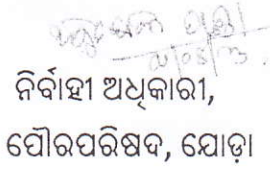 ନିର୍ବାହୀ ଅଧିକାରୀ,
ପୌରପରିଷଦ, ଯୋଡ଼ା